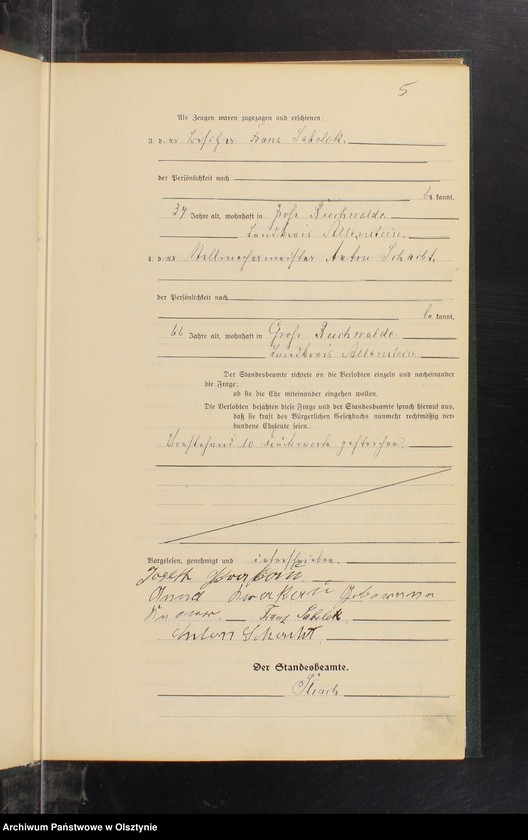 5
Als Zeugen waren zugezogen und erschienen:
3. der Besitzer Franz Sabelek.
der Persönlichkeit nach
bekannt,
34 Jahre alt, wohnhaft in Groß Buchwalde
Landkreis Allenstein.
4. der Stellmachermeister Anton Schacht,
der Persönlichkeit nach
bekannt,
66 Jahre alt, wohnhaft in Groß Buchwalde
Landkreis Allenstein
Der Standesbeamte richtete an die Verlobten einzeln und nacheinander
die Frage:
ob sie die Ehe miteinander eingehen wollen.
Die Verlobten bejahten diese Frage und der Standesbeamte sprach hierauf aus,
daß sie kraft des Bürgerlichen Gesetzbuchs nunmehr rechtmäßig ver-
bundene Eheleute seien.
Vorstehend 10 Druckworte gestrichen.
Vorgelesen, genehmigt und unterschrieben.
Joseph
Anna geborene
Franz Sabelek
Anton Schacht
Der Standesbeamte.
Archiwum Państwowe w Olsztynie